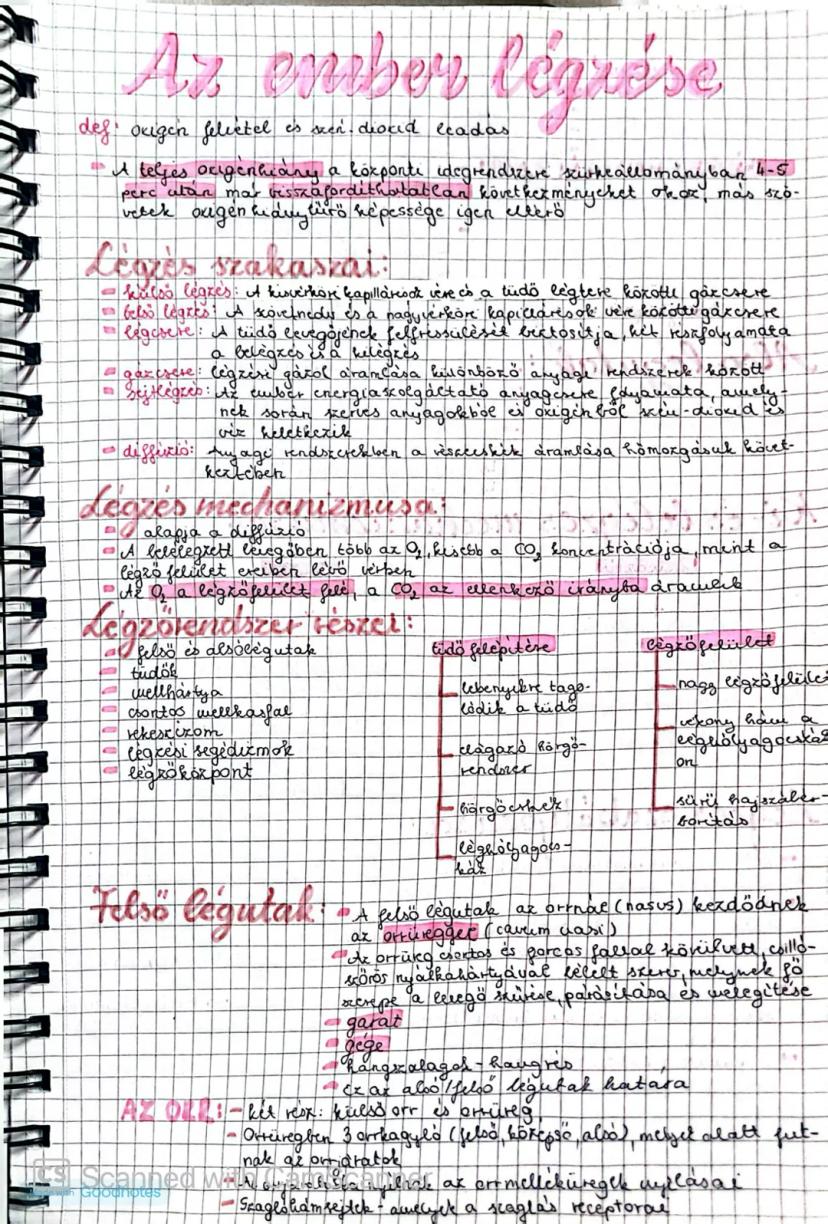 Az ember légzése
def: oxigén felvétel és szén-dioxid leadás
- A teljes oxigénhiány a központi idegrendszer szürkeállományában 4-5
perc után már visszafordíthatatlan következményeket okoz, más szö-
vetek oxigénhiánytűrő képessége igen eltérő
Légzés szakaszai:
- külső légzés: A kisvérköri kapillárisok vére és a tüdő légtere közötti gázcsere
- belső légzés: A szövetnedv és a nagyvérköri kapillárisok vére közötti gázcsere
- légcsere: A tüdő levegőjének felfrissülését biztosítja, két részfolyamata
a belégzés és a kilégzés
- gázcsere: légzési gázok áramlása különböző anyagi rendszerek között
- sejtlégzés: Az ember energiaszolgáltató anyagcsere folyamata, amely-
nek során szerves anyagokból és oxigénből szén-dioxid és
víz keletkezik
- diffúzió: Anyagi rendszerekben a részecskék áramlása hőmozgásuk követ-
keztében
Légzés mechanizmusa:
- alapja a diffúzió
- A belélegzett levegőben több az O₂, kisebb a CO₂ koncentrációja, mint a
légző felület ereiben lévő vérben
- Az O₂ a légzőfelület felé, a CO₂ az ellenkező irányba áramlik
Légzőrendszer részei:
- felső és alsólégutak
- tüdők
- mellhártya
- csontos mellkasfal
- rekeszizom
- légzési segédizmok
- légzőközpont
tüdő felépítése
lebenyekre tago-
lódik a tüdő
elágazó hörgő-
rendszer
hörgőcskék
léghólyagocs-
kák
légzőfelület
nagy légzőfelület
vékony hám a
léghólyagocská
on
sűrű hajszálér-
borítás
Felső légutak:
- A felső légutak az orrnál (nasus) kezdődnek
az orrüreggel (cavum nasi)
- Az orrüreg csontos és porcos fallal körülvett, csilló-
szőrös nyálkahártyával bélelt szerv, melynek fő
szerepe a levegő szűrése, párásítása és melegítése
- garat
- gége
- hangszalagok - hangrés
- ez az alsó/felső légutak határa
AZ ORR: - két rész: külső orr és orrüreg
- Orrüregben 3 orrkagyló (felső, középső, alsó), melyek alatt fut-
nak az orrjáratok
nyílnak az orrmelléküregek nyílásai
- Szaglóhámsejtek - amelyek a szaglás receptorai
CS Scanned with CamScanner
Goodnotes